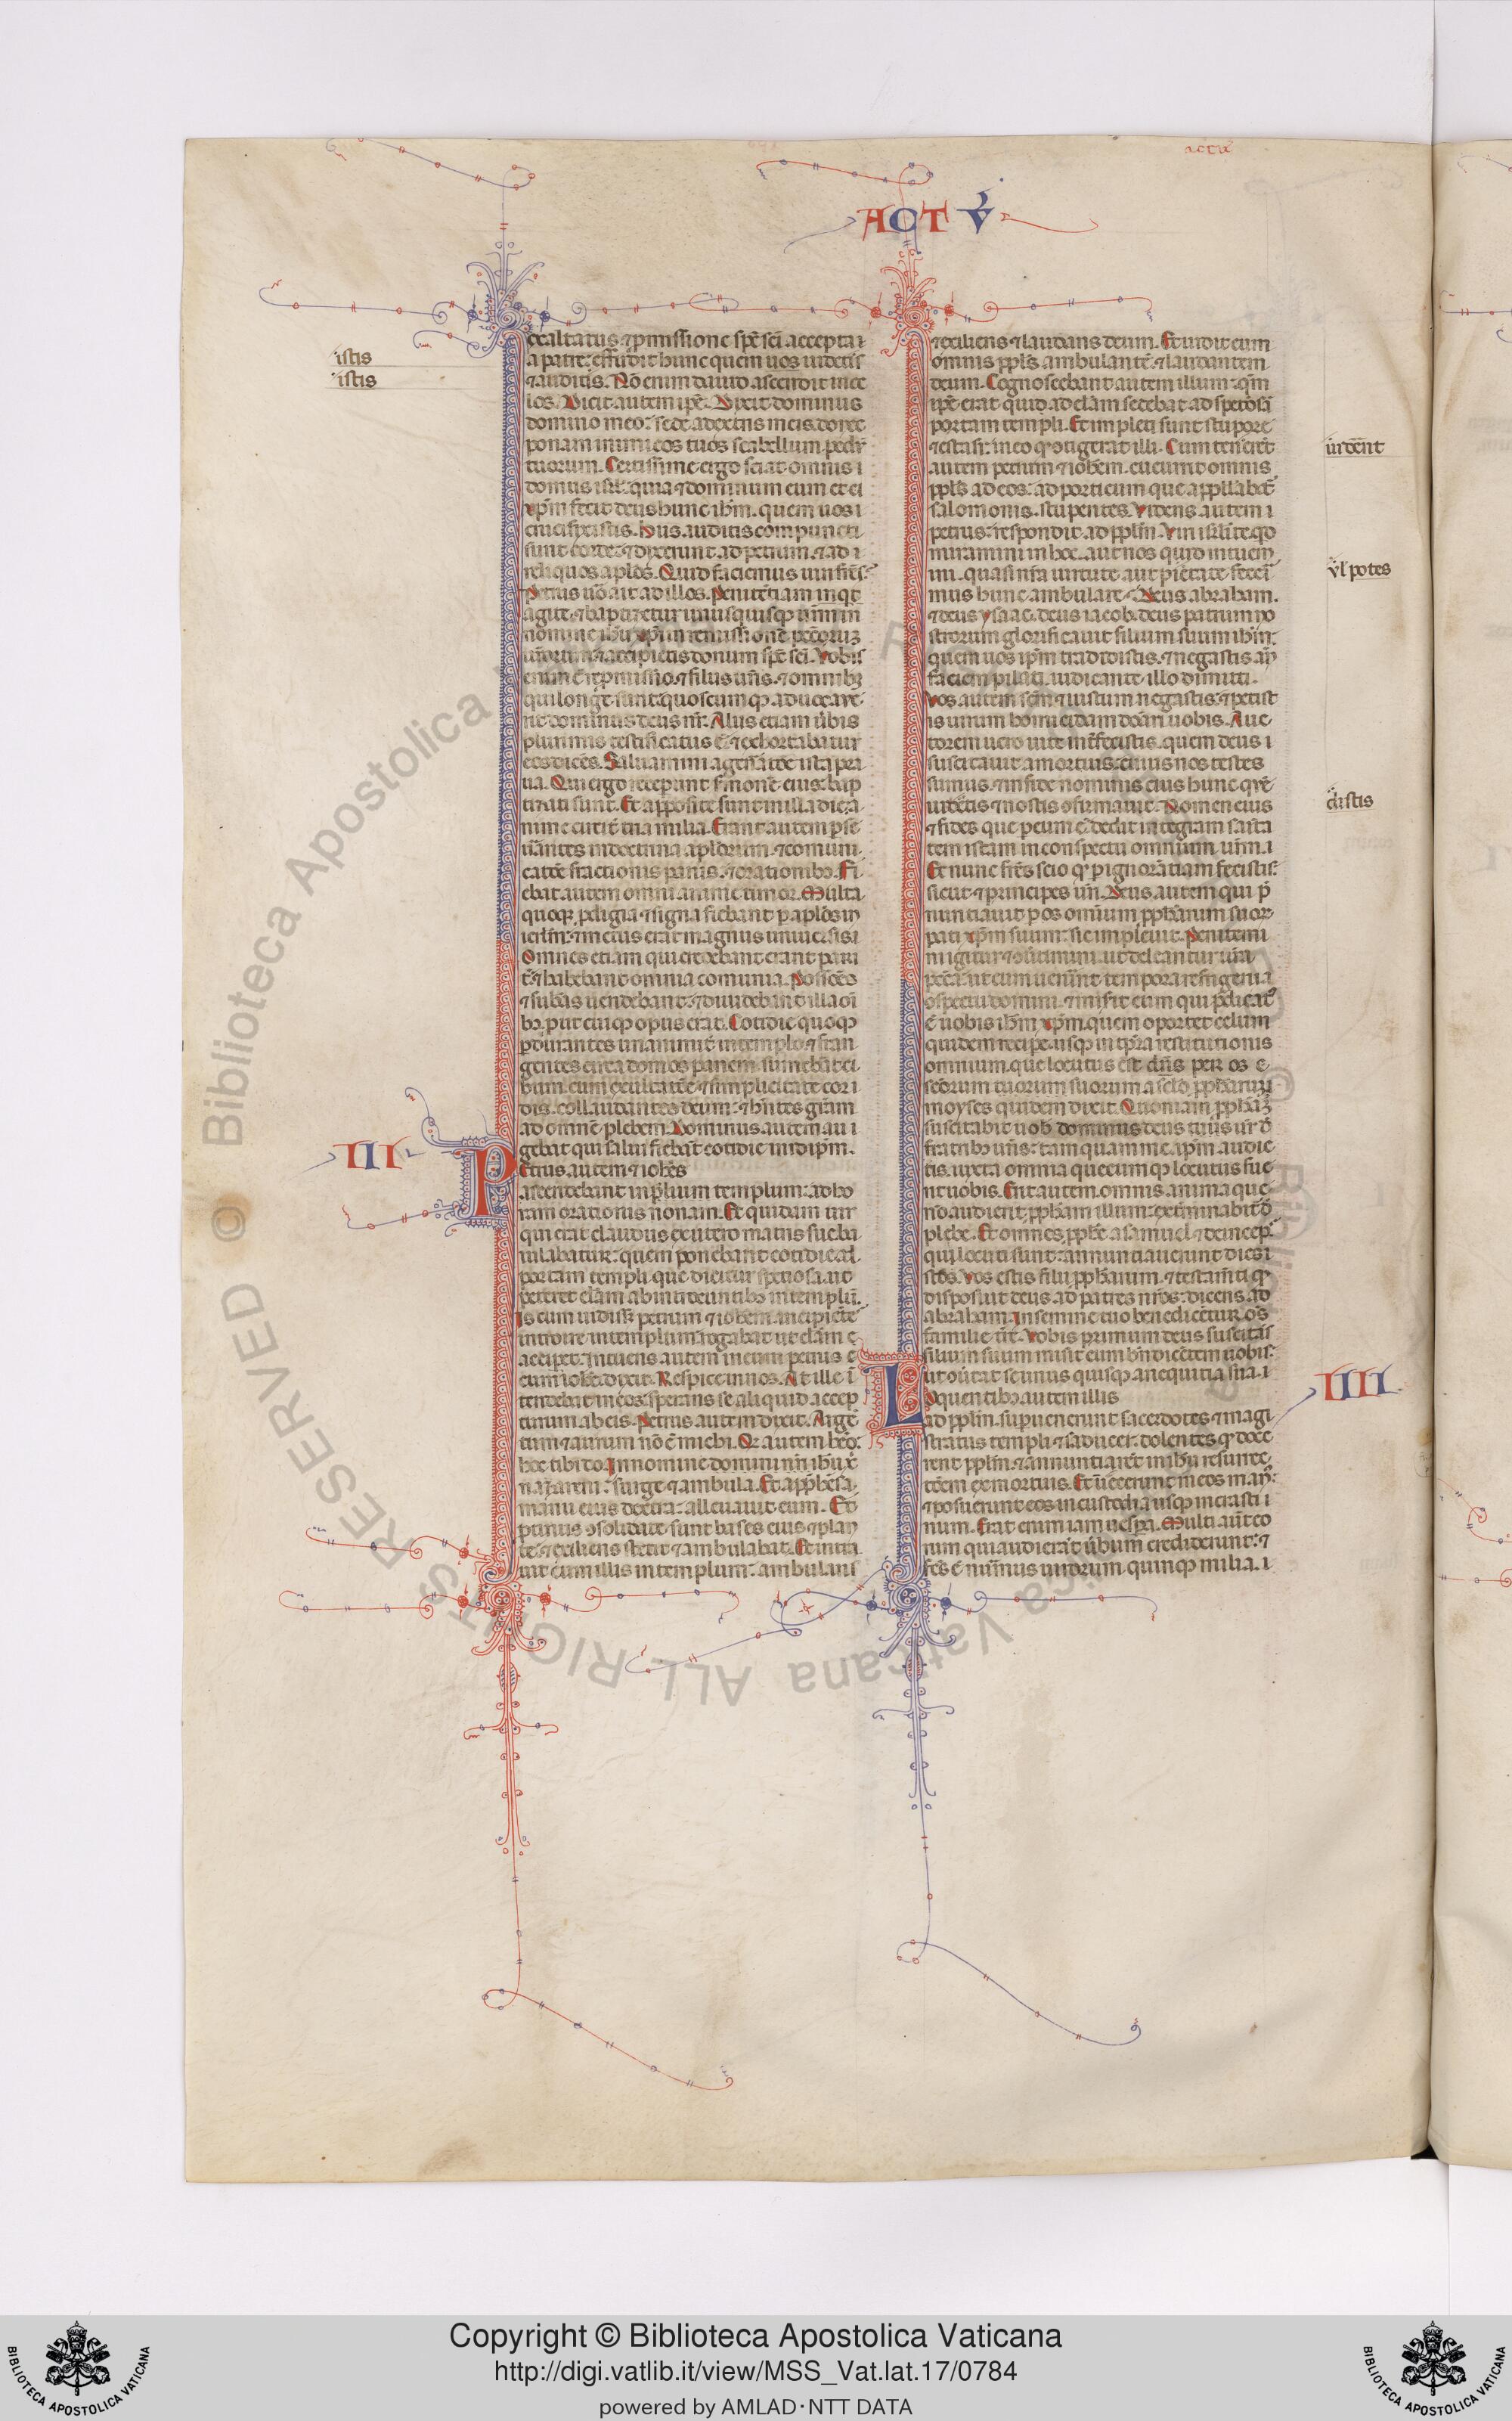 acta
ACT V
istis
istis
exaltatus ⁊ ꝓmissione spē sc̄i accepta ı
a patre: effudit hunc quem uos uidetis
⁊ auditis. Nō enim dauid ascendit in ce
los. Dicit autem ipē. Dixit dominus
domino meo: sede a dextris meis. donec
ponam inimicos tuos scabellum pedū
tuorum. Certissime ergo sciat omnis ı
domus isrl̄: quia ⁊ dominum eum et ı
xp̄m fecit deus hunc ihm̄. quem uos ı
crucifixistis. His auditis compuncti
sunt corde: ⁊ dixerunt ad petrum. ⁊ ad ı
reliquos aplōs. Quid faciemus uiri fr̄es:
Petrus uō ait ad illos. Penitētiam inqt
agite. ⁊ baptizetur unusquisqꝫ ur̄m in
nomine ihū xp̄i in remissionē peccōrum
ur̄orum: ⁊ accipietis donum spē sc̄i. Vobis
enim ē repmissio. ⁊ filiis ur̄is. ⁊ omnibꝫ
qui longe sunt. quoscumqꝫ aduocaue
rit dominus deus nr̄. Aliis etiam ūbis
plurimis testificatus ē: ⁊ exhortabatur
eos dicēs. Saluamini a gen̄atōe ista pra
ua. Qui ergo receperunt ſmonē eius: bap
tizati sunt. Et apposite sunt in illa die: a
nime circit̄ tria milia. Erant autem ꝑse
uerantes in doctrina aplōrum. ⁊ comuni
catōe fractionis panis. ⁊ orationibꝫ. Fi
ebat autem omni anime timor. Multa
quoqꝫ ꝓdigia ⁊ signa fiebant ꝑ aplōs in
ierlm̄: ⁊ metus erat magnus in uniuersis ı
Omnes etiam qui credebant erant pari
t̄: ⁊ habebant omnia comunia. Possessōes
⁊ subas uendebant: ⁊ diuidebant illa oı̄
bꝫ. put cuiqꝫ opus erat. Cotidie quoqꝫ
ꝑdurantes unanimit̄ in templo ⁊ fran
gentes circa domos panem. sumebāt ci
bum. cum exultatōe ⁊ simplicitate cor ı
dis. collaudantes deum: ⁊ hn̄tes gr̄am
ad omnē plebem. Dominus autem au ı
gebat qui salui fiebāt cotidie in idipm̄.
III
Petrus autem ⁊ iohēs
ascendebant in ꝓlium templum: ad ho
ram orationis nonam. Et quidam uir
qui erat claudus ex utero matris sue ba
iulabatur: quem ponebant cotidie ad
portam templi que dicitur speciosa. ut
peteret elām ab introeuntibꝫ in templū.
Is cum uidisꝫ petrum ⁊ iohēm incipiētē
introire in templum: rogabat ut elām ı
accipet. Intuens autem in eum petrus c̄
cum iohē. dixit. Respice in nos. At ille ı̄
tendebat in eos: sperans se aliquid accep
turum ab eis. Petrus autem dixit. Argē
tum ⁊ aurum nō ē michi. Qꝫ autem hēo:
hoc tibi do. In nomine domini nr̄i ihū xp̄i
nazareni: surge ⁊ ambula. Et app̄hēsa
manu eius dextra: alleuauit eum. Et
ꝓtinus ɔsolidate sunt bases eius ⁊ plan
te. ⁊ exiliens stetit ⁊ ambulabat. Et intra
uit cum illis in templum: ambulans
⁊ exiliens ⁊ laudans deum. Et uidit eum
omnis pplūs ambulantē. ⁊ laudantem
deum. Cognoscebant autem illum: qm̄
ipē erat qui ad elām sedebat ad speciosā
portam templi. Et impleti sunt stupore
⁊ extasi: in eo qꝫ ɔtigerat illi. Cum teneret̄
autem petrum ⁊ iohēm. cucurrit omnis
pplūs ad eos: ad porticum que appllabat̄
salomonis. stupentes. Videns autem ı
petrus: respondit ad pplm̄. Viri isrlite. qd
miramini in hoc. aut nos quid intuem
ini. quasi nr̄a uirtute aut pietate feceri
mus hunc ambulare: Deus abraham.
⁊ deus ysaac. deus iacob. deus patrum no
strorum glorificauit filium suum ihm̄:
quem uos ipm̄ tradidistis. ⁊ negastis añ
faciem pilati. iudicante illo dimitti.
Vos autem scm̄ ⁊ iustum negastis. ⁊ petist
is uirum homicidam donari uobis. Auc
torem uero uite int̄fecistis. quem deus ı
suscitauit a mortuis: cuius nos testes
sumus. ⁊ in fide nominis eius hunc quē
uidetis ⁊ nostis ɔfirmauit. Nomen eius
⁊ fides que ꝑ eum ē. dedit integram sanita
tem istam in conspectu omnium ur̄m. ı
Et nunc fr̄es scio qꝫ ꝑ ignorātiam fecistis:
sicut ⁊ principes ur̄i. Deus autem qui p̄
nuntiauit ꝑ os omnium ꝓphetarum suor
pati xp̄m suum: sic impleuit. Penitemi
ni igitur ⁊ ɔuertimini. ut deleantur ur̄a
pecc̄a: ut cum uenerint tempora refrigerii a
ɔspectu domini. ⁊ miserit eum qui p̄dicat̄
ē uobis ihm̄ xp̄m. quem oportet celum
quidem recipe. usqꝫ in tp̄ra restitutionis
omnium. que locutus est dn̄s per os s
sc̄orum tuorum suorum a sclō ꝓphētarum
moyses quidem dixit. Quoniam ꝓphētā
suscitabit uob dominus deus uester d
fratribꝫ ur̄is: tamquam me. ipm̄ audie
tis. iuxta omnia quecumqꝫ locutus fue
rit uobis. Erit autem. omnis anima que
nō audierit ꝓphētam illum: exterminabit̄ d
plebe. Et omnes ꝓphētē a samuel ⁊ deincep
qui locuti sunt: annuntiauerunt dies ı
istos. Vos estis filii ꝓphētarum. ⁊ testam̄ti qꝫ
disposuit deus ad patres nr̄os: dicens ad
abraham. In semine tuo benedicētur om̄s
familie tr̄e. Vobis primum deus suscitās
filium suum misit eum bn̄dicētem uobis:
ut ɔuertat se unusquisqꝫ a nequitia sua. ı
IIII
Loquentibꝫ autem illis
ad pplm̄. supuenerunt sacerdotes ⁊ magi
stratus templi ⁊ saducei: dolentes qꝫ doce
rent pplm̄. ⁊ annuntiarēt in ihū resurrec
tōem ex mortuis. Et iniecerunt in eos man̄:
⁊ posuerunt eos in custodia usqꝫ in crasti ı
num. Erat enim iam uespa. Multi aut̄ eo
rum qui audierāt ūbum crediderunt: ⁊
fc̄s ē num̄us uirorum quinqꝫ milia. ı
uıdent
ul potes
distis
Biblioteca Apostolica Vaticana ALL RIGHTS RESERVED ©
Copyright © Biblioteca Apostolica Vaticana
http://digi.vatlib.it/view/MSS_Vat.lat.17/0784
powered by AMLAD · NTT DATA
BIBLIOTECA APOSTOLICA VATICANA
BIBLIOTECA APOSTOLICA VATICANA